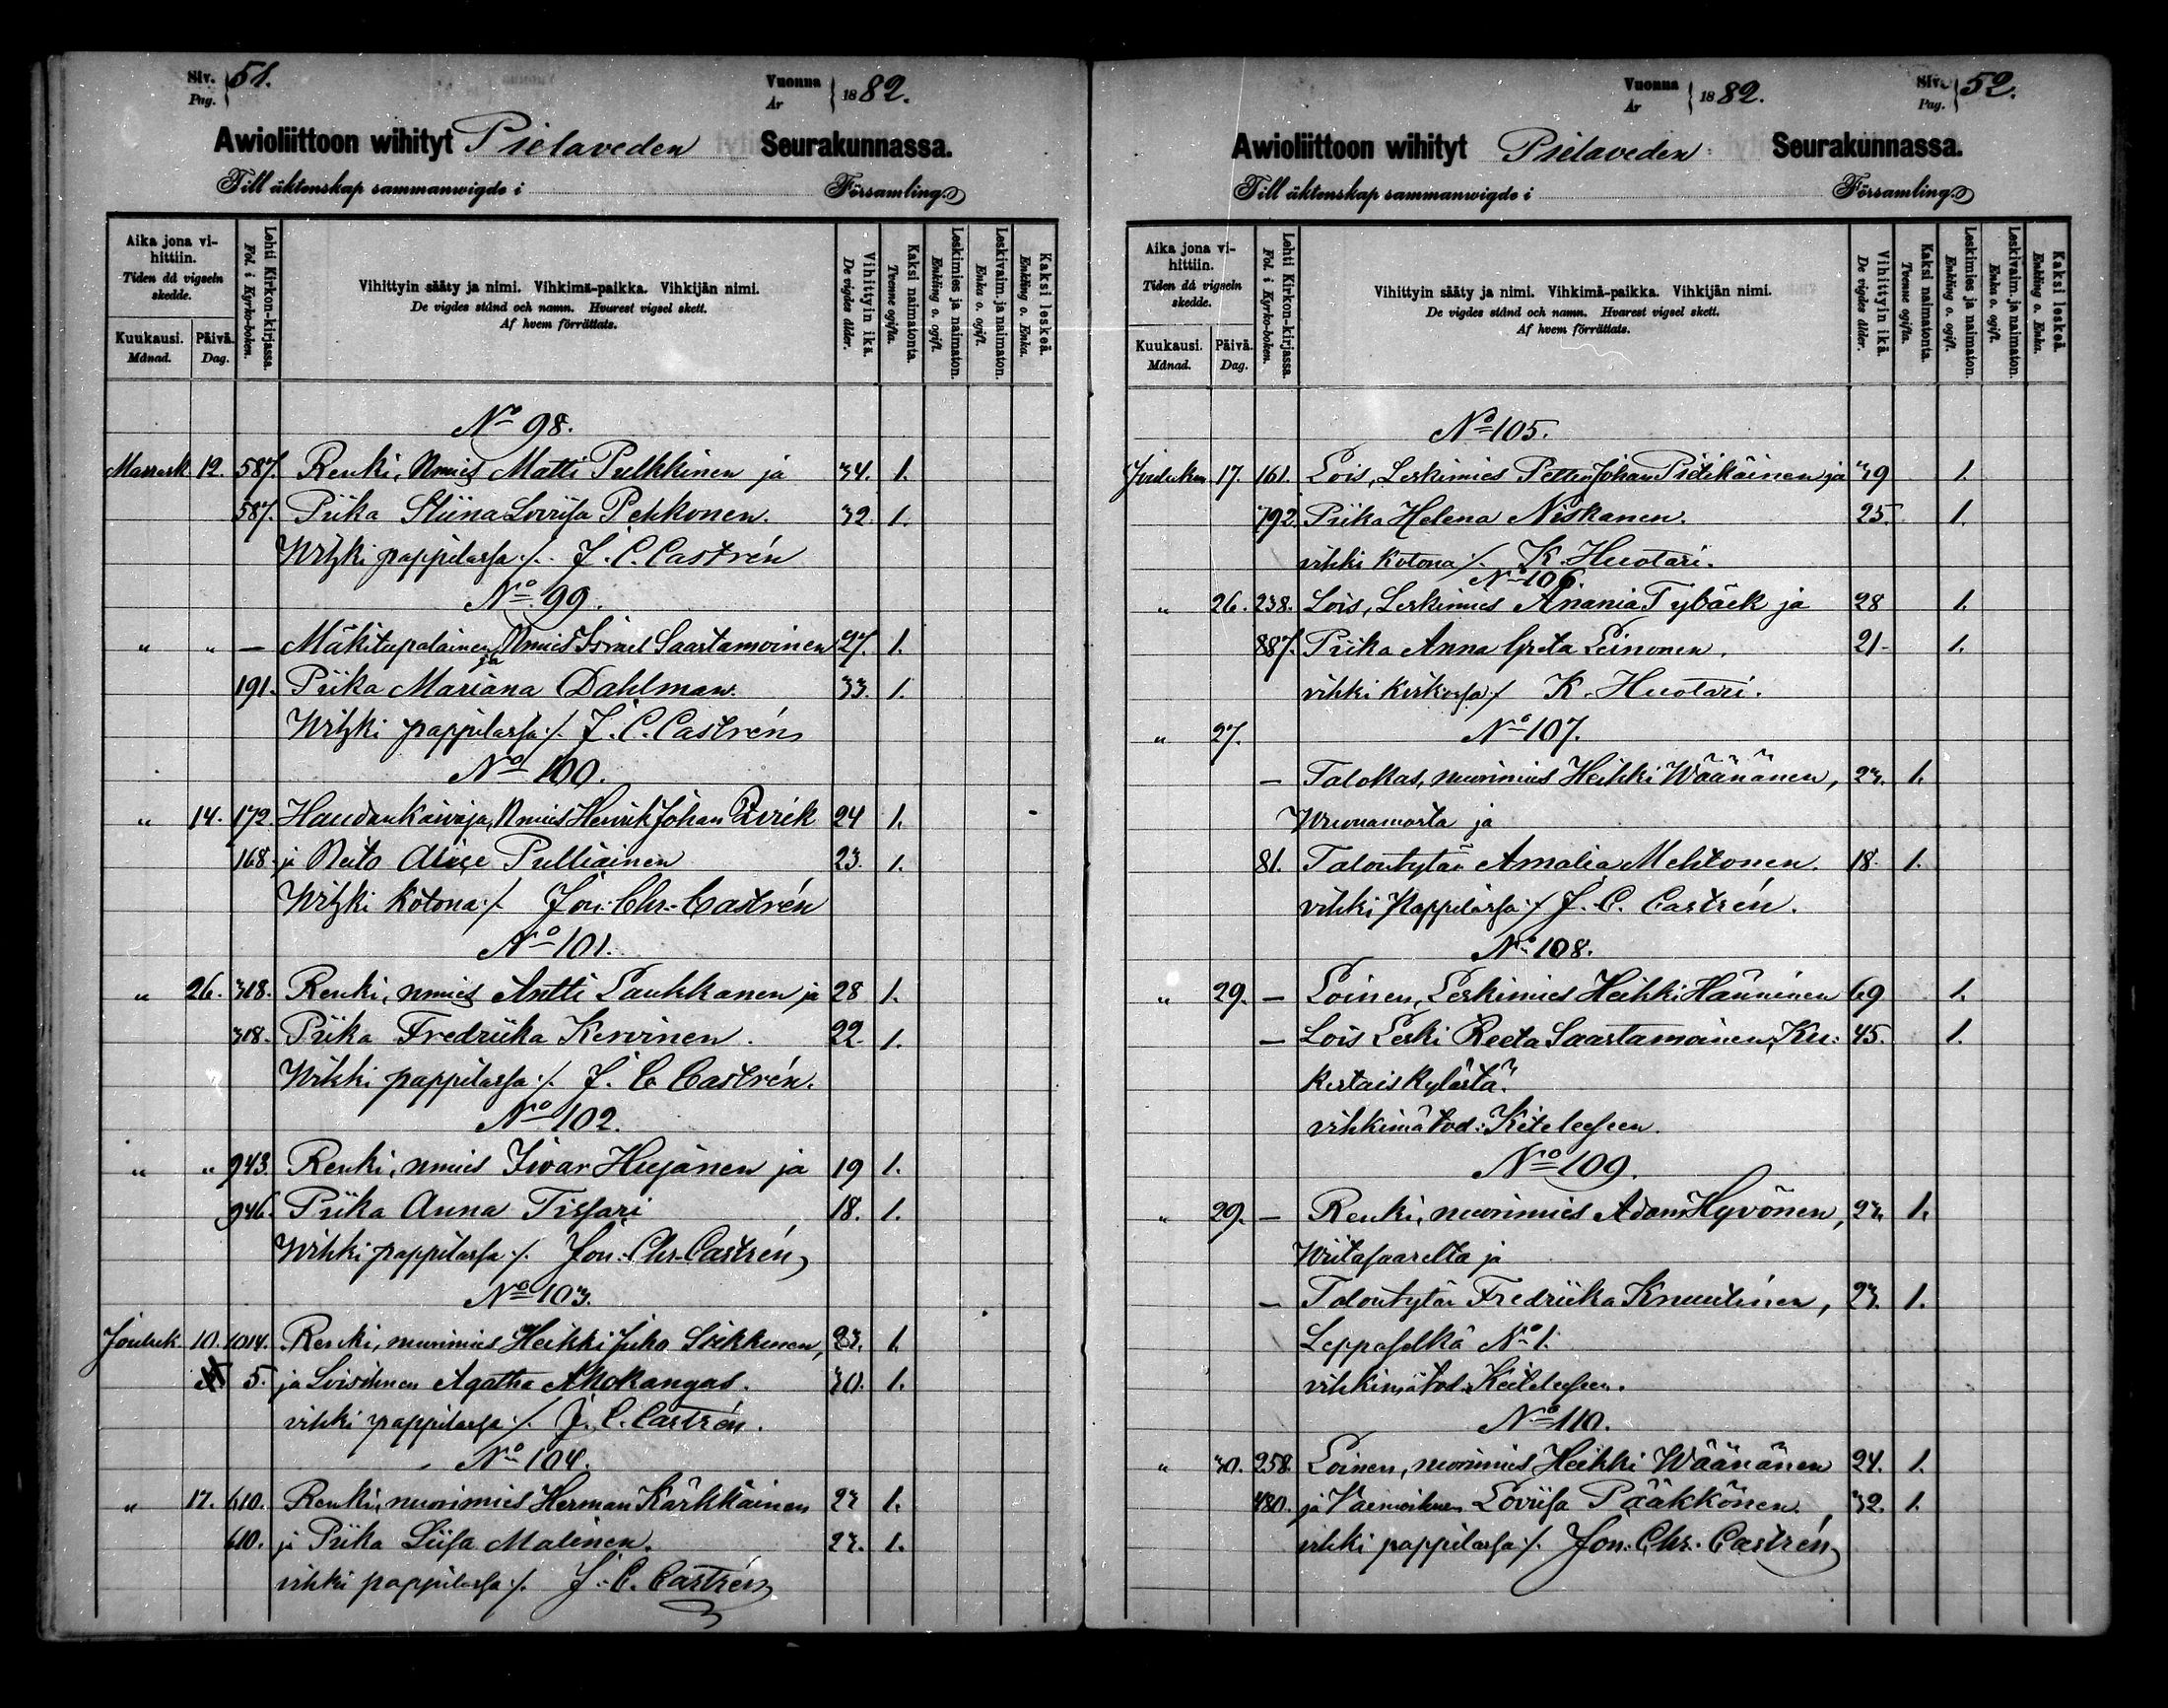 Siv. Pag. 51.
Vuonna År 1882.
Awioliittoon wihityt Pielaveden Seurakunnassa.
Till äktenskap sammanwigde i Församling.
Aika jona vihittiin. Tiden då vigseln skedde.
Kuukausi. Månad.
Päivä. Dag.
Lehti Kirkon-kirjassa. Fol. i Kyrko-boken.
Vihittyin sääty ja nimi. Vihkimä-paikka. Vihkijän nimi.
De vigdes stånd och namn. Hvarest vigsel skett.
Af hvem förrättats.
Vihittyin ikä. De vigdes ålder.
Kaksi naimatonta. Tvenne ogifta.
Leskimies ja naimaton. Enkling o. ogift.
Leskivaim. ja naimaton. Enka o. ogift.
Kaksi leskeä. Enkling o. Enka.
No 98.
Marrask. 12. 587. Renki, Nmies Matti Pulkkinen ja 34. 1.
587. Piika Stiina Loviisa Pekkonen. 32. 1.
Wihki pappilassa ./. J. C. Castrén
No 99.
" " — Mäkitupalainen, Nmies Israel Saastamoinen 27. 1.
ja
191. Piika Mariana Dahlman. 33. 1.
Wihki pappilassa ./. J. C. Castrén
No 100.
" 14. 172. Haudankaivaja, Nmies Henrik Johan 24 1.
168. ja Neito Alise Pulliainen 23. 1.
Wihki kotona ./. Jon. Chr. Castrén
No 101.
" 26. 318. Renki, nmies Antti Laukkanen ja 28 1.
318. Piika Fredriika Kervinen. 22. 1.
Wihki pappilassa ./. J. C. Castrén.
No 102.
" " 943. Renki, nmies Iivar Hujanen ja 19 1.
946. Piika Anna Tissari 18. 1.
Wihki pappilassa ./. Jon. Chr. Castrén
No 103.
Jouluk. 10. 1014. Renki, nuorimies Heikki Juho Siikkinen, 23. 1.
5. ja Loisihmen Agatha Ahokangas. 30. 1.
vihki pappilassa ./. J. C. Castrén.
No 104.
" 17. 610. Renki, nuorimies Herman Kärkkäinen 23 1.
610. ja Piika Liisa Malinen. 23. 1.
vihki pappilassa ./. J. C. Castrén
Siv. Pag. 52.
Vuonna År 1882.
Awioliittoon wihityt Pielaveden Seurakunnassa.
Till äktenskap sammanwigde i Församling.
Aika jona vihittiin. Tiden då vigseln skedde.
Kuukausi. Månad.
Päivä. Dag.
Lehti Kirkon-kirjassa. Fol. i Kyrko-boken.
Vihittyin sääty ja nimi. Vihkimä-paikka. Vihkijän nimi.
De vigdes stånd och namn. Hvarest vigsel skett.
Af hvem förrättats.
Vihittyin ikä. De vigdes ålder.
Kaksi naimatonta. Tvenne ogifta.
Leskimies ja naimaton. Enkling o. ogift.
Leskivaim. ja naimaton. Enka o. ogift.
Kaksi leskeä. Enkling o. Enka.
No 105.
Joulukun 17. 161. Lois, Leskimies Petter Johan Pietikäinen ja 39 1.
792. Piika Helena Niskanen. 25. 1.
vihki kotona ./. K. Huotari.
No 106.
" 26. 238. Lois, Leskimies Anania Tybäck ja 28 1.
887. Piika Anna Greta Leinonen. 21. 1.
vihki kirkossa ./. K. Huotari.
" 27. No 107.
— Talokas, nuorimies Heikki Wäänänen, 23. 1.
ja
81. Talontytär Amalia Mehtonen. 18. 1.
vihki Pappilassa ./. J. C. Castrén.
No 108.
" 29. — Loinen, Leskimies Heikki Hänninen 69 1.
— Lois Leski Reeta Saastamoinen, Kii- 45. 1.
vihkimätod: Keiteleeseen.
No 109.
" 29. — Renki, nuorimies Adam Hyvönen, 23. 1.
Wiitasaarelta ja
— Talontytär Fredriika Knuutinen, 23. 1.
Leppäselkä No 1.
vihkimätod: Keiteleeseen.
No 110.
" 30. 258. Loinen, nuorimies Heikki Wäänänen 24. 1.
480. ja Vaimoihmen Loviisa Pääkkönen. 32. 1.
vihki pappilassa ./. Jon. Chr. Castrén